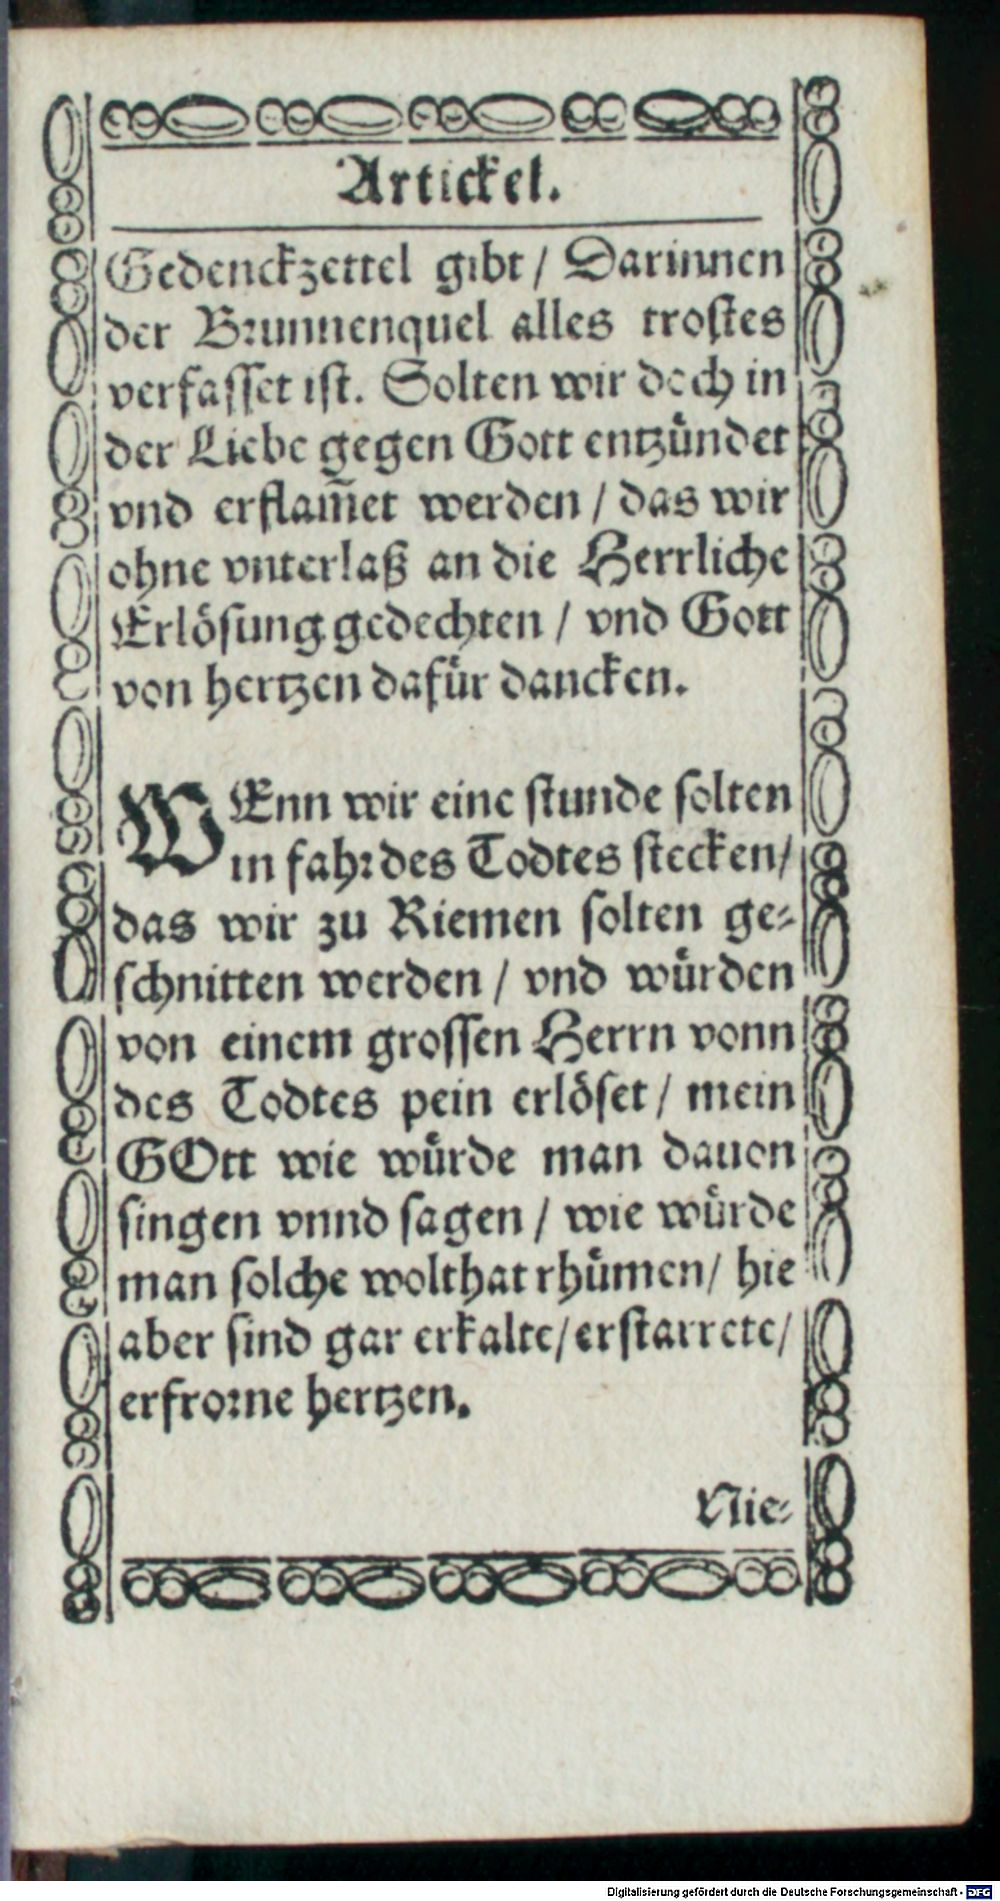 Artickel.
Gedenckzettel gibt / Darinnen
der Brunnenquel alles trostes
verfasset ist. Solten wir doch in
der Liebe gegen Gott entzündet
vnd erflam̃et werden / das wir
ohne vnterlaß an die Herrliche
Erlösung gedechten / vnd Gott
von hertzen dafür dancken.
WEnn wir eine stunde solten
in fahr des Todtes stecken/
das wir zu Riemen solten ge-
schnitten werden / vnd würden
von einem grossen Herrn vonn
des Todtes pein erlöset / mein
GOtt wie würde man dauon
singen vnnd sagen / wie würde
man solche wolthat rhümen/ hie
aber sind gar erkalte/ erstarrete/
erfrorne hertzen.
Nie-
Digitalisierung gefördert durch die Deutsche Forschungsgemeinschaft - DFG